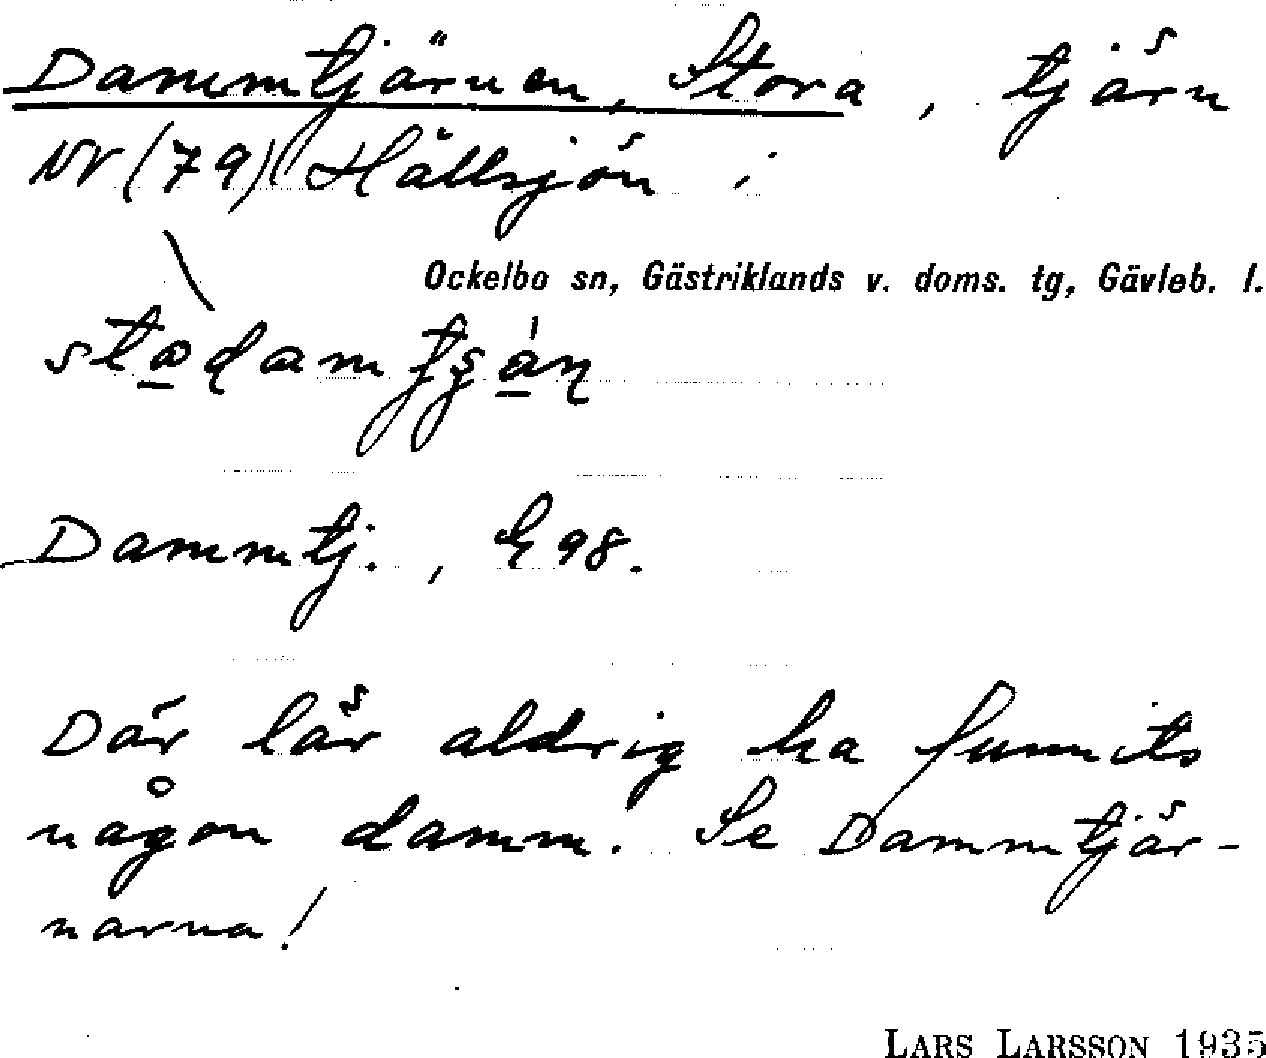 Dammtjärnen, Stora, tjärn
NV (79) Hällsjön i
Ockelbo sn, Gästriklands v. doms. tg, Gävleb. l.
Dammtj., E 98.
Där lär aldrig ha funnits
någon damm. Se Dammtjär-
narna!
LARS LARSSON 1935